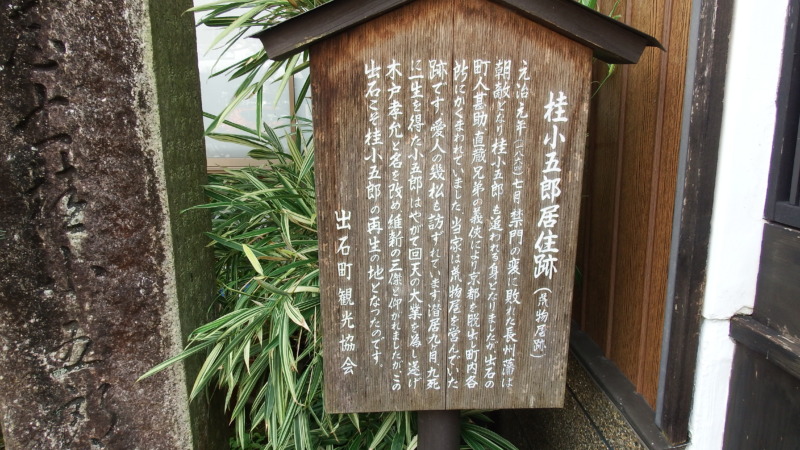 桂小五郎居住跡(荒物屋跡)
元治元年(一八六四)七月 禁門の変に敗れた長州藩は
朝敵となり 桂小五郎も追われる身となりましたが 出石の
町人甚助 直蔵兄弟の義侠により 京都を脱出し 町内各
所にかくまわれていました 当家は荒物屋を営んでいた
跡です 愛人の幾松も訪ずれています 潜居九ヶ月 九死
に一生を得た小五郎はやがて回天の大業を為し遂げ
木戸孝允と名を改め 維新の三傑と仰がれましたが この
出石こそ桂小五郎の再生の地となったのです。
出石町観光協会
桂小五郎